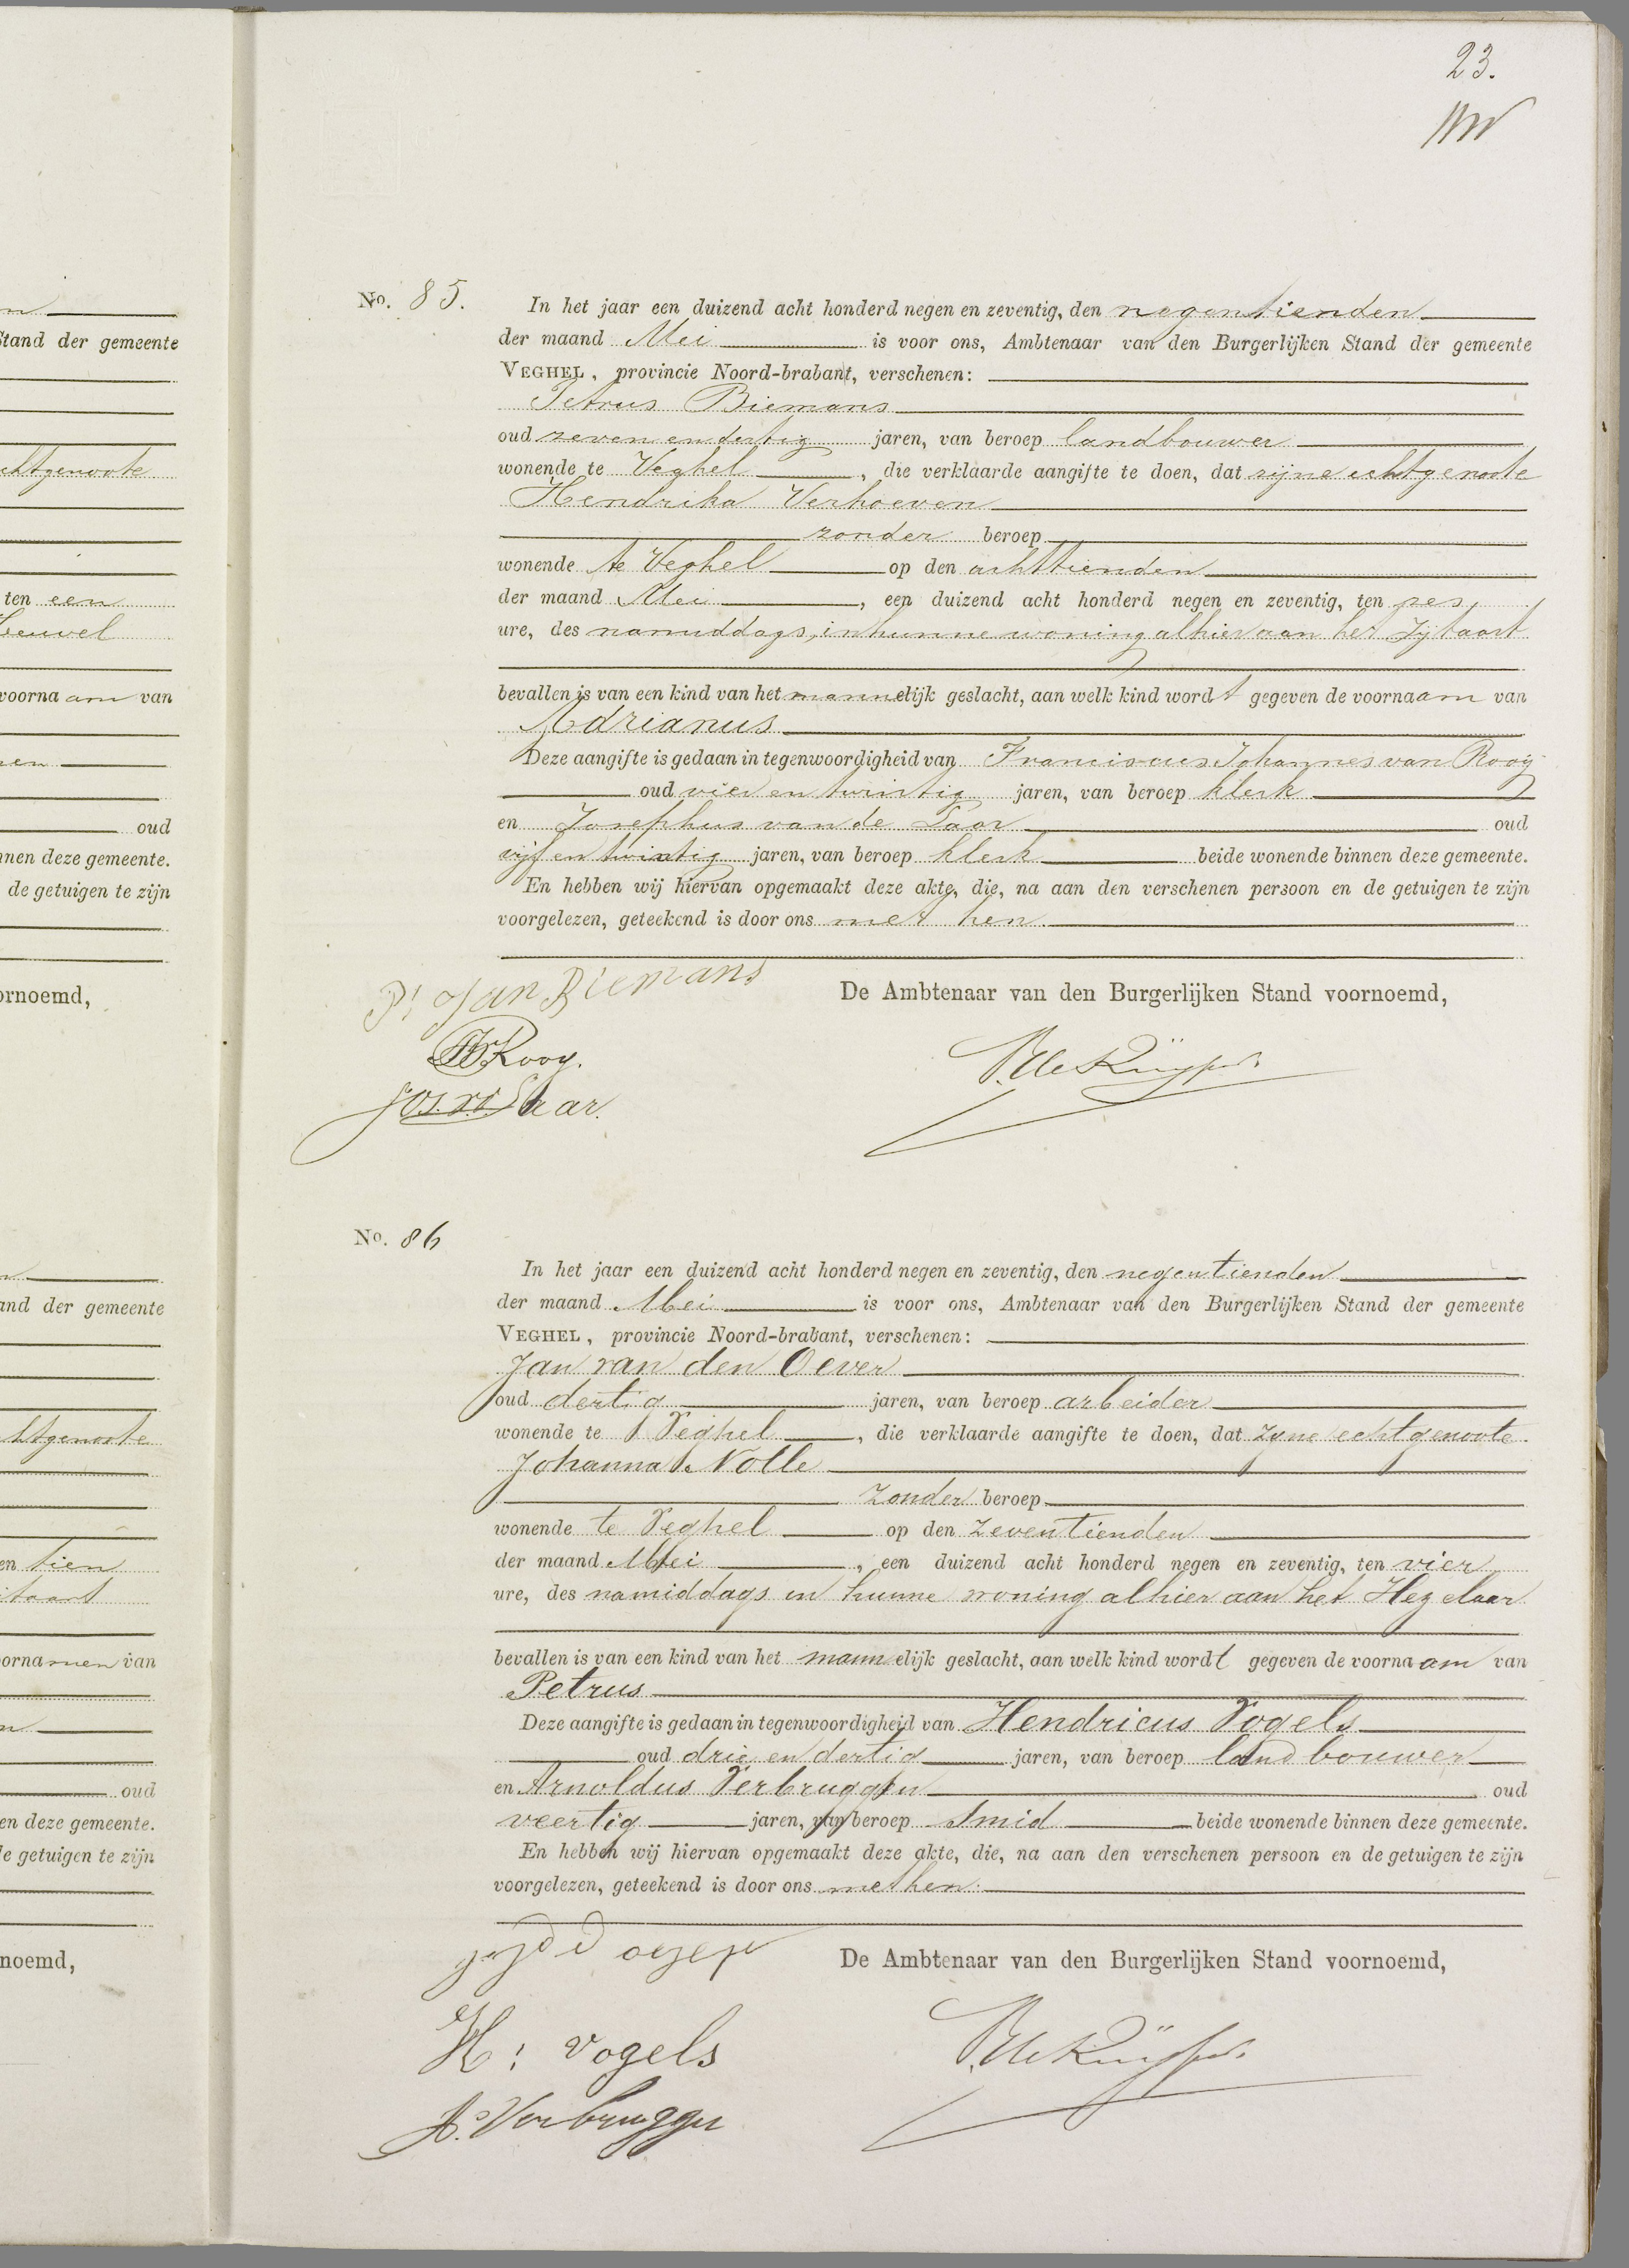 23.
n
Stand der gemeente
echtgenoote
ten een
Heuvel
voornaam van
nen
oud
nnen deze gemeente.
de getuigen te zijn
ornoemd,
No. 85.
In het jaar een duizend acht honderd negen en zeventig, den negentienden
der maand Mei is voor ons, Ambtenaar van den Burgerlijken Stand der gemeente
VEGHEL, provincie Noord-brabant, verschenen:
Petrus Biemans
oud zeven en dertig jaren, van beroep landbouwer
wonende te Veghel, die verklaarde aangifte te doen, dat zijne echtgenoote
Hendrika Verhoeven
zonder beroep
wonende te Veghel op den achttienden
der maand Mei, een duizend acht honderd negen en zeventig, ten zes
ure, des namiddags, in hunne woning alhier aan het Zijtaart
bevallen is van een kind van het mannelijk geslacht, aan welk kind wordt gegeven de voornaam van
Adrianus
Deze aangifte is gedaan in tegenwoordigheid van Franciscus Johannes van Rooij
oud vier en twintig jaren, van beroep klerk
en Josephus van de Laar oud
vijf en twintig jaren, van beroep klerk beide wonende binnen deze gemeente.
En hebben wij hiervan opgemaakt deze akte, die, na aan den verschenen persoon en de getuigen te zijn
voorgelezen, geteekend is door ons met hen.
P: Jan Biemans
De Ambtenaar van den Burgerlijken Stand voornoemd,
Rooy.
Jos. v. d. Laar.
de Kuÿper
n
and der gemeente
htgenoote
en tien
itaart
oornamen van
n
oud
en deze gemeente.
de getuigen te zijn
noemd,
No. 86
In het jaar een duizend acht honderd negen en zeventig, den negentienden
der maand Mei is voor ons, Ambtenaar van den Burgerlijken Stand der gemeente
VEGHEL, provincie Noord-brabant, verschenen:
Jan van den Oever
oud dertig jaren, van beroep arbeider
wonende te Veghel, die verklaarde aangifte te doen, dat zyne echtgenoote
Johanna Nolle
zonder beroep
wonende te Veghel op den zeventienden
der maand Mei, een duizend acht honderd negen en zeventig, ten vier
ure, des namiddags in hunne woning alhier aan het Hezelaar
bevallen is van een kind van het mannelijk geslacht, aan welk kind wordt gegeven de voornaam van
Petrus
Deze aangifte is gedaan in tegenwoordigheid van Hendricus Vogels
oud drie en dertig jaren, van beroep landbouwer
en Arnoldus Verbruggen oud
veertig jaren, van beroep Smid beide wonende binnen deze gemeente.
En hebben wij hiervan opgemaakt deze akte, die, na aan den verschenen persoon en de getuigen te zijn
voorgelezen, geteekend is door ons met hen.
De Ambtenaar van den Burgerlijken Stand voornoemd,
H: Vogels
A. Verbruggen
de Kuÿper